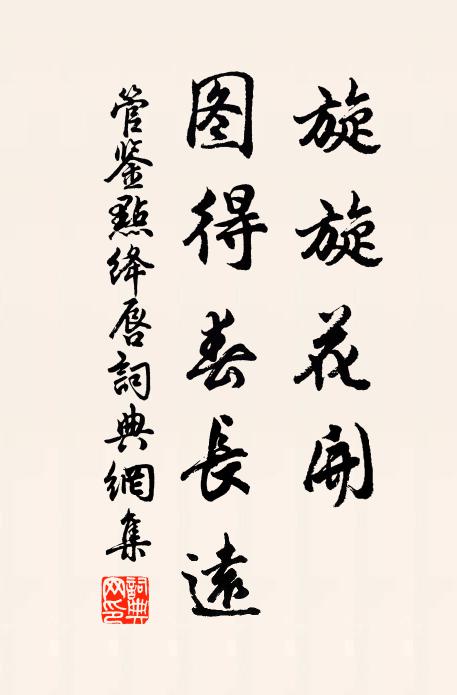 旋旋花開
图得春長遠
管鉴點絳唇詞典網集
詞典网印